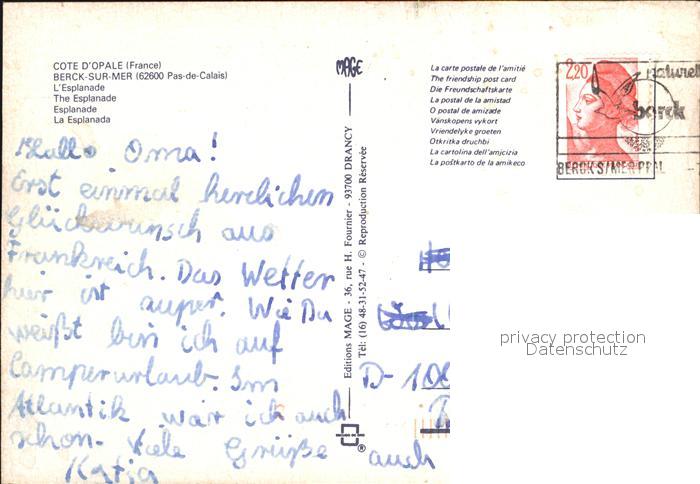 COTE D'OPALE (France)
BERCK-SUR-MER (62600 Pas-de-Calais)
L'Esplanade
The Esplanade
Esplanade
La Esplanada
Hallo Oma!
Erst einmal herzlichen
Glückwunsch aus
Frankreich. Das Wetter
hier ist super. Wie Du
weißt bin ich auf
Camperurlaub. Im
Atlantik war ich auch
schon. Viele Grüße auch
Katja
MAGE
Editions MAGE - 36, rue H. Fournier - 93700 DRANCY
Tél: (16) 48-31-52-47 - © Reproduction Réservée
La carte postale de l'amitié
The friendship post card
Die Freundschaftskarte
La postal de la amistad
O postal de amizade
Vänskopens vykort
Vriendelyke groeten
Otkritka druchbi
La cartolina dell'amicizia
La poŝtkarto de la amikeco
2,20
naturell
berck
BERCK S/MER PPAL
D-100
privacy protection
Datenschutz